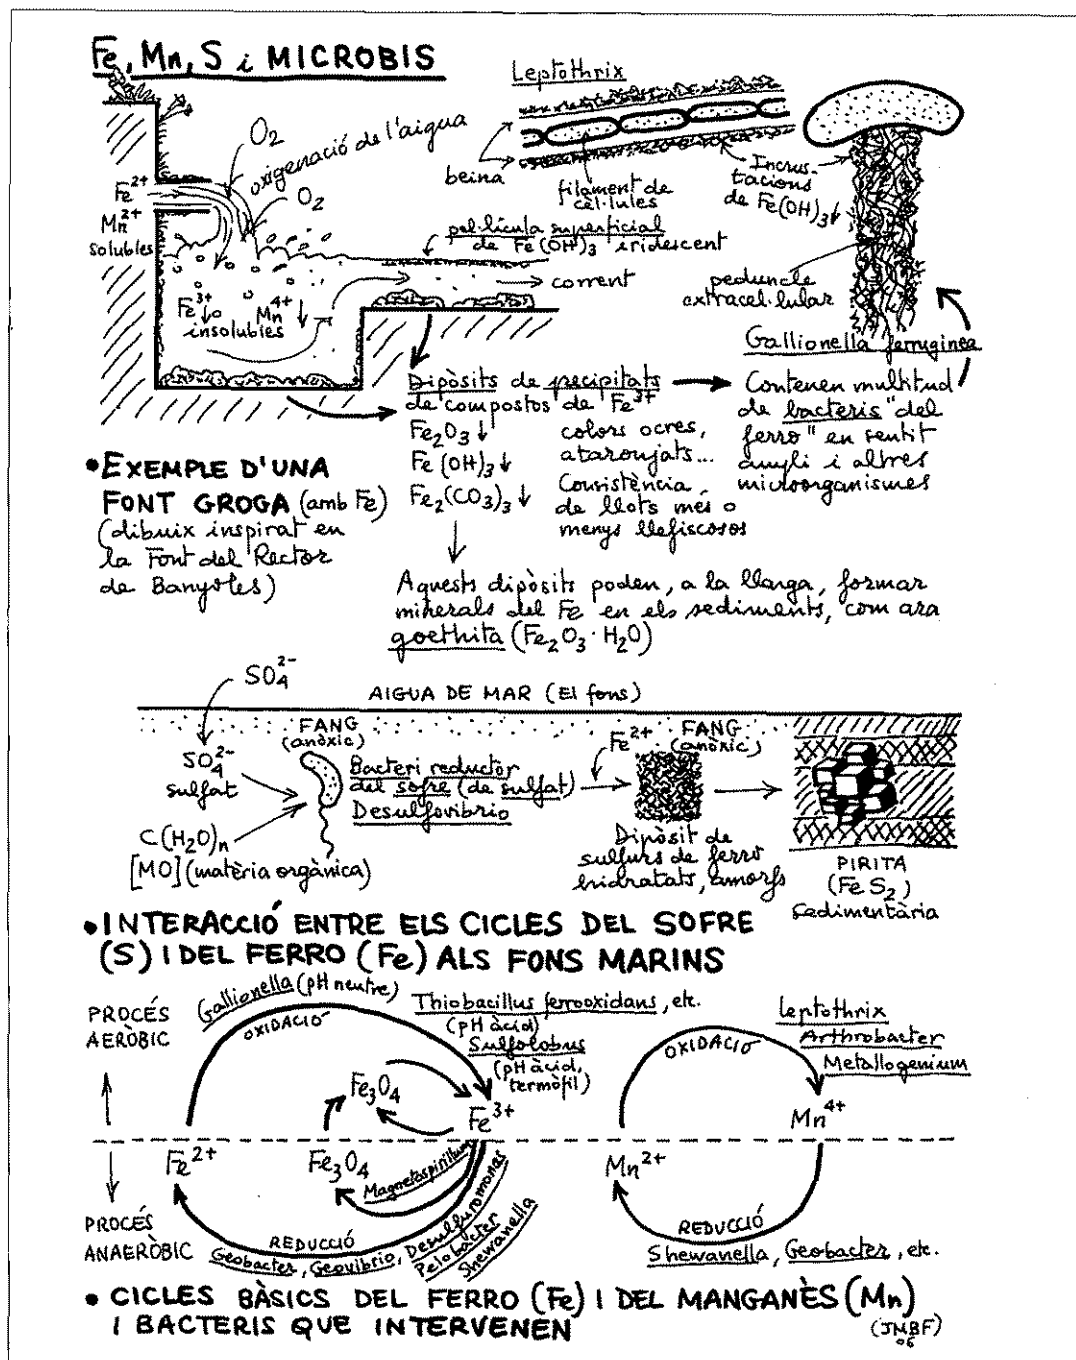 Fe, Mn, S i MICROBIS
Leptothrix
O2
oxigenació de l'aigua
O2
Fe2+
Mn2+
solubles
beina
filament de
cèl·lules
Incrus-
tacions
de Fe(OH)3↓
pel·lícula superficial
de Fe(OH)3 iridescent
corrent
Fe3+↓
Mn4+↓
insolubles
peduncle
extracel·lular
Gallionella ferruginea
Dipòsits de precipitats
de compostos de Fe3+
Fe2O3↓
Fe(OH)3↓
Fe2(CO3)3↓
colors ocres,
ataronjats...
Consistència
de llots més o
menys llefiscosos
Contenen multitud
de bacteris "del
ferro" en sentit
ampli i altres
microorganismes
• EXEMPLE D'UNA
FONT GROGA (amb Fe)
(dibuix inspirat en
la Font del Rector
de Banyoles)
Aquests dipòsits poden, a la llarga, formar
minerals del Fe en els sediments, com ara
goethita (Fe2O3·H2O)
SO4 2-
AIGUA DE MAR (El fons)
SO4 2-
sulfat
C(H2O)n
[MO] (matèria orgànica)
FANG
(anòxic)
Bacteri reductor
del sofre (de sulfat)
Desulfovibrio
Fe2+
FANG
(anòxic)
Dipòsit de
sulfurs de ferro
hidratats, amorfs
PIRITA
(FeS2)
Sedimentària
• INTERACCIÓ ENTRE ELS CICLES DEL SOFRE
(S) I DEL FERRO (Fe) ALS FONS MARINS
PROCÉS
AERÒBIC
Gallionella (pH neutre)
OXIDACIÓ
Thiobacillus ferrooxidans, etc.
(pH àcid)
Sulfolobus
(pH àcid,
termòfil)
Fe3O4
Fe3+
OXIDACIÓ
Leptothrix
Arthrobacter
Metallogenium
Mn4+
Fe2+
Fe3O4
Magnetospirillum
Mn2+
PROCÉS
ANAERÒBIC
REDUCCIÓ
Geobacter, Geovibrio, Desulfuromonas
Pelobacter
Shewanella
REDUCCIÓ
Shewanella, Geobacter, etc.
• CICLES BÀSICS DEL FERRO (Fe) I DEL MANGANÈS (Mn)
I BACTERIS QUE INTERVENEN
(JMBF)
06